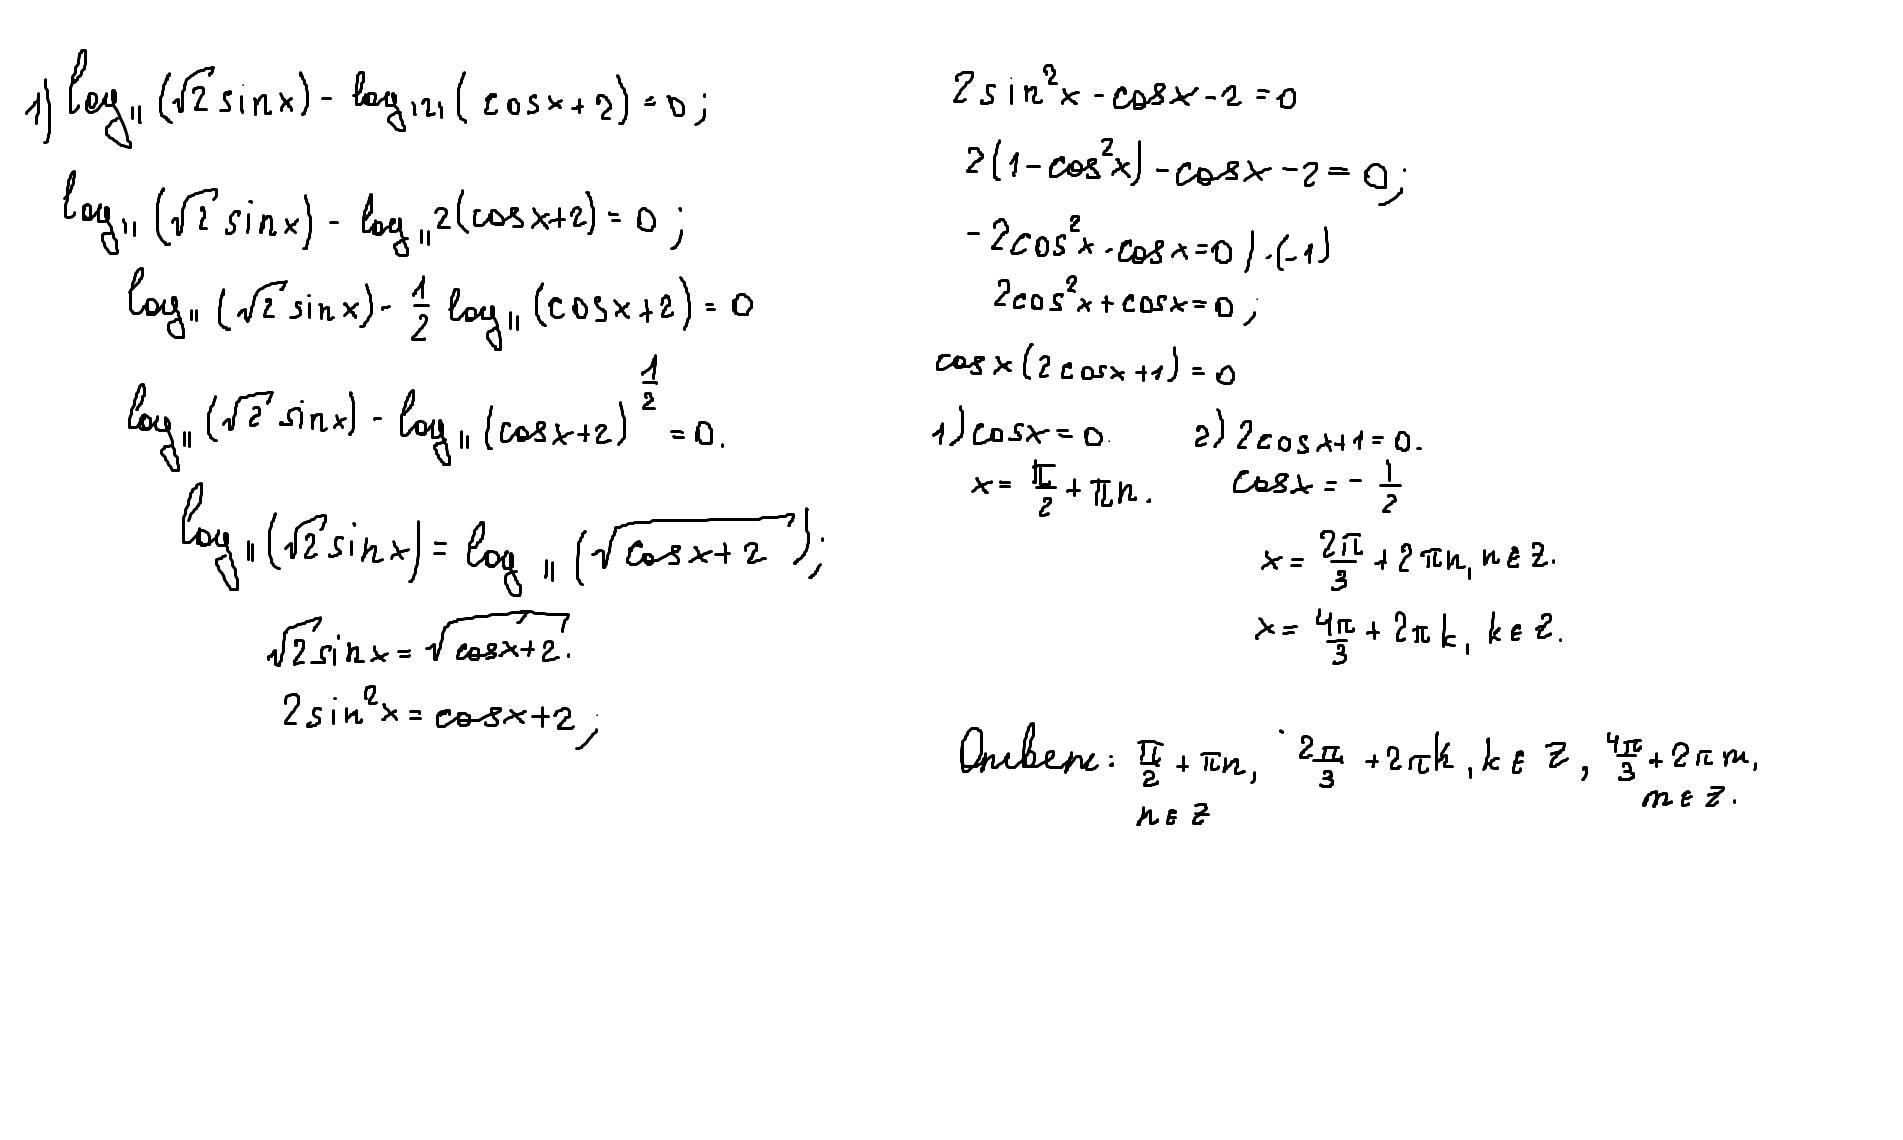 1) log₁₁(√2 sinx) - log₁₂₁(cosx+2) = 0;
log₁₁(√2 sinx) - log₁₁2(cosx+2) = 0;
log₁₁(√2 sinx) - 1/2 log₁₁(cosx+2) = 0
log₁₁(√2 sinx) - log₁₁(cosx+2)^(1/2) = 0.
log₁₁(√2 sinx) = log₁₁(√(cosx+2));
√2 sinx = √(cosx+2).
2sin²x = cosx+2;
2sin²x - cosx - 2 = 0
2(1-cos²x) - cosx - 2 = 0;
-2cos²x - cosx = 0 | ·(-1)
2cos²x + cosx = 0;
cosx(2cosx+1) = 0
1) cosx = 0. 2) 2cosx+1 = 0.
x = π/2 + πn. cosx = -1/2
x = 2π/3 + 2πn, n∈Z.
x = 4π/3 + 2πk, k∈Z.
Ответ: π/2 + πn, 2π/3 + 2πk, k∈Z, 4π/3 + 2πm,
n∈Z m∈Z.